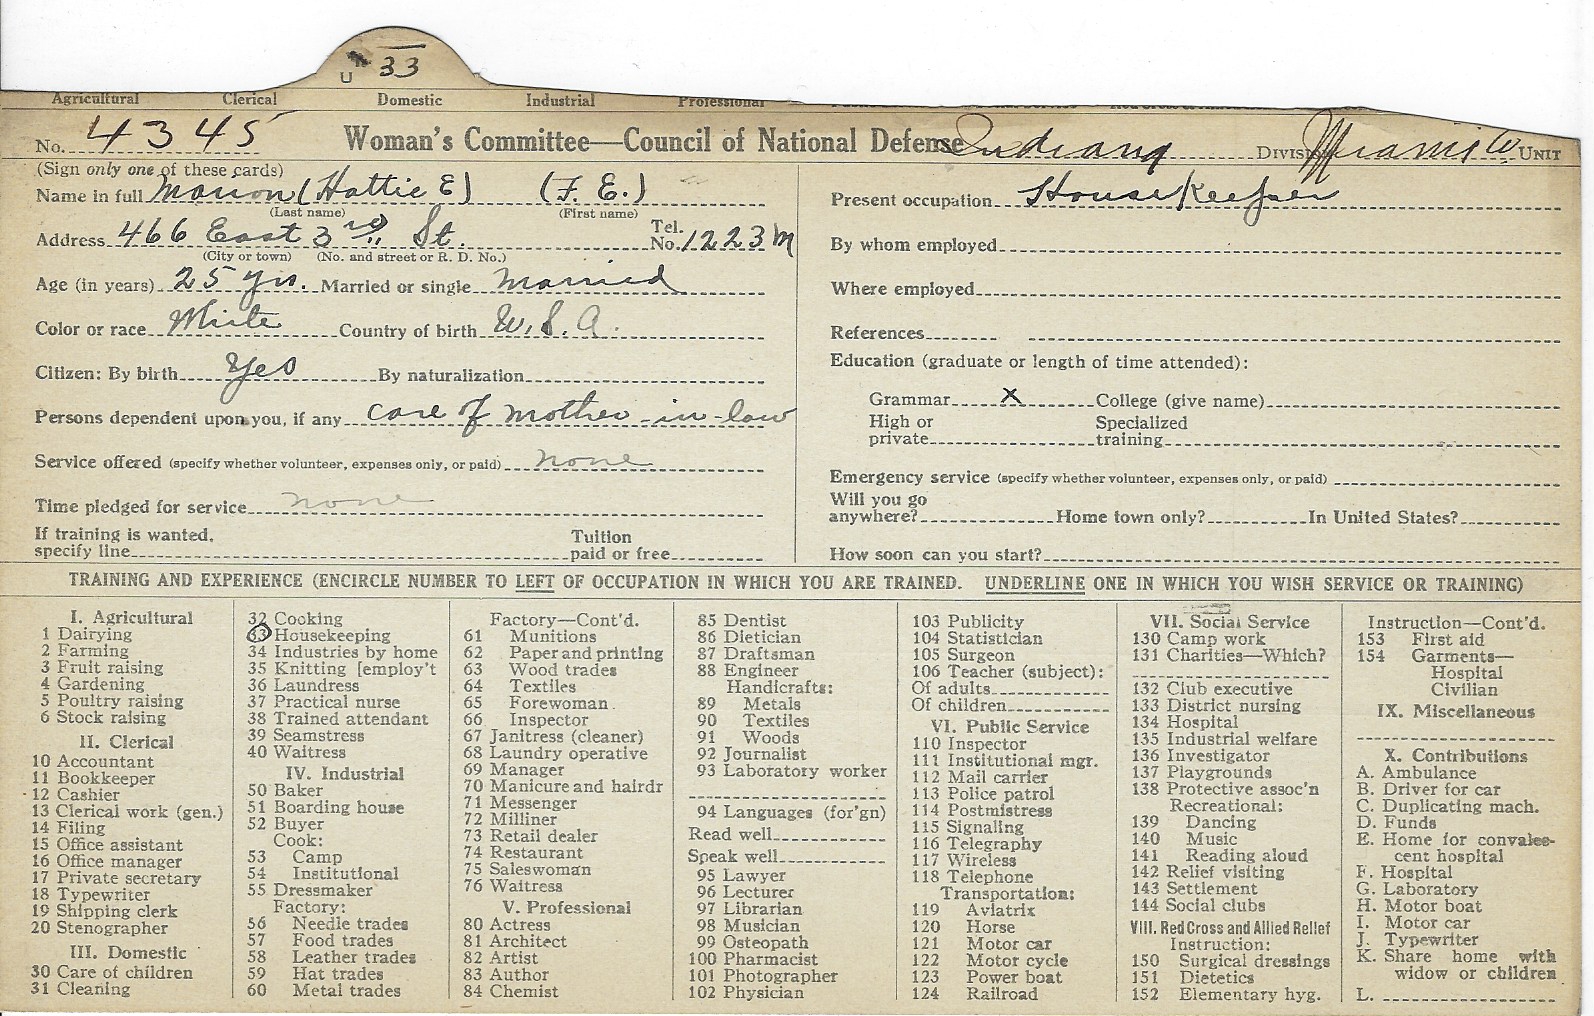 U 33
Agricultural Clerical Domestic Industrial Professional
No. 4345 Woman's Committee—Council of National Defense Indiana Division Miami Co. Unit
(Sign only one of these cards)
Name in full Marion (Hattie E) (F. E.)
(Last name) (First name)
Address 466 East 3rd St. Tel. No. 1223 M
(City or town) (No. and street or R. D. No.)
Age (in years) 25 yrs. Married or single Married
Color or race White Country of birth U.S.A.
Citizen: By birth Yes By naturalization
Persons dependent upon you, if any care of mother-in-law
Service offered (specify whether volunteer, expenses only, or paid) none
Time pledged for service none
If training is wanted, specify line Tuition paid or free
Present occupation House Keeper
By whom employed
Where employed
References
Education (graduate or length of time attended):
Grammar X College (give name)
High or private Specialized training
Emergency service (specify whether volunteer, expenses only, or paid)
Will you go anywhere? Home town only? In United States?
How soon can you start?
TRAINING AND EXPERIENCE (ENCIRCLE NUMBER TO LEFT OF OCCUPATION IN WHICH YOU ARE TRAINED. UNDERLINE ONE IN WHICH YOU WISH SERVICE OR TRAINING)
I. Agricultural
1 Dairying
2 Farming
3 Fruit raising
4 Gardening
5 Poultry raising
6 Stock raising
II. Clerical
10 Accountant
11 Bookkeeper
12 Cashier
13 Clerical work (gen.)
14 Filing
15 Office assistant
16 Office manager
17 Private secretary
18 Typewriter
19 Shipping clerk
20 Stenographer
III. Domestic
30 Care of children
31 Cleaning
32 Cooking
33 Housekeeping
34 Industries by home
35 Knitting [employ't
36 Laundress
37 Practical nurse
38 Trained attendant
39 Seamstress
40 Waitress
IV. Industrial
50 Baker
51 Boarding house
52 Buyer
Cook:
53 Camp
54 Institutional
55 Dressmaker
Factory:
56 Needle trades
57 Food trades
58 Leather trades
59 Hat trades
60 Metal trades
Factory—Cont'd.
61 Munitions
62 Paper and printing
63 Wood trades
64 Textiles
65 Forewoman
66 Inspector
67 Janitress (cleaner)
68 Laundry operative
69 Manager
70 Manicure and hairdr
71 Messenger
72 Milliner
73 Retail dealer
74 Restaurant
75 Saleswoman
76 Waitress
V. Professional
80 Actress
81 Architect
82 Artist
83 Author
84 Chemist
85 Dentist
86 Dietician
87 Draftsman
88 Engineer
Handicrafts:
89 Metals
90 Textiles
91 Woods
92 Journalist
93 Laboratory worker
94 Languages (for'gn)
Read well
Speak well
95 Lawyer
96 Lecturer
97 Librarian
98 Musician
99 Osteopath
100 Pharmacist
101 Photographer
102 Physician
103 Publicity
104 Statistician
105 Surgeon
106 Teacher (subject):
Of adults
Of children
VI. Public Service
110 Inspector
111 Institutional mgr.
112 Mail carrier
113 Police patrol
114 Postmistress
115 Signaling
116 Telegraphy
117 Wireless
118 Telephone
Transportation:
119 Aviatrix
120 Horse
121 Motor car
122 Motor cycle
123 Power boat
124 Railroad
VII. Social Service
130 Camp work
131 Charities—Which?
132 Club executive
133 District nursing
134 Hospital
135 Industrial welfare
136 Investigator
137 Playgrounds
138 Protective assoc'n
Recreational:
139 Dancing
140 Music
141 Reading aloud
142 Relief visiting
143 Settlement
144 Social clubs
VIII. Red Cross and Allied Relief
Instruction:
150 Surgical dressings
151 Dietetics
152 Elementary hyg.
Instruction—Cont'd.
153 First aid
154 Garments—
Hospital
Civilian
IX. Miscellaneous
X. Contributions
A. Ambulance
B. Driver for car
C. Duplicating mach.
D. Funds
E. Home for convales-
cent hospital
F. Hospital
G. Laboratory
H. Motor boat
I. Motor car
J. Typewriter
K. Share home with
widow or children
L.